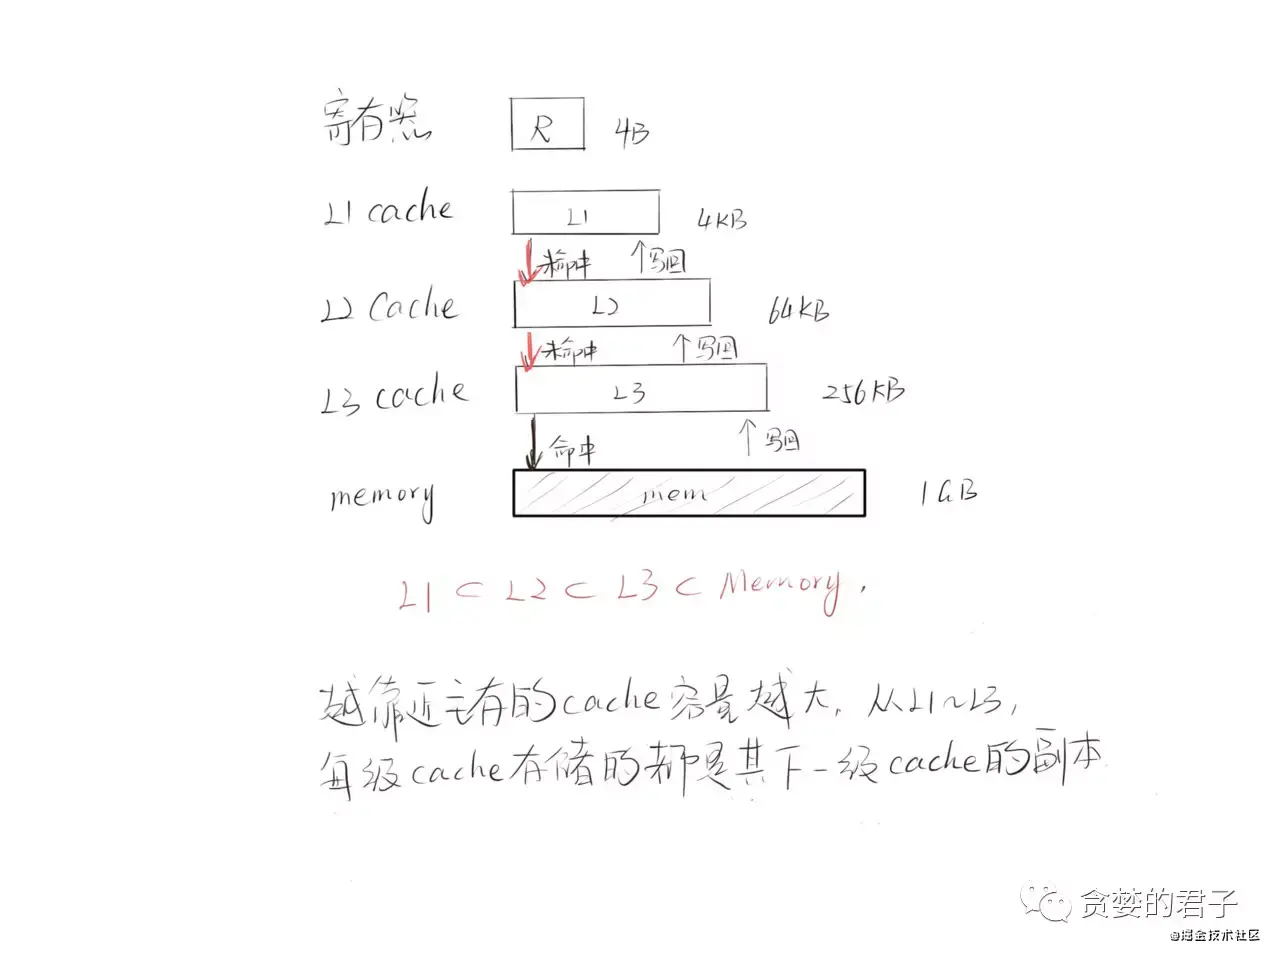 寄存器 R 4B
L1 cache L1 4KB
未命中 ↑写回
L2 Cache L2 64KB
未命中 ↑写回
L3 cache L3 256KB
命中 ↑写回
memory mem 1GB
L1 ⊂ L2 ⊂ L3 ⊂ Memory.
越靠近主存的cache容量越大, 从L1~L3,
每级cache存储的都是其下一级cache的副本
贪婪的君子
@掘金技术社区